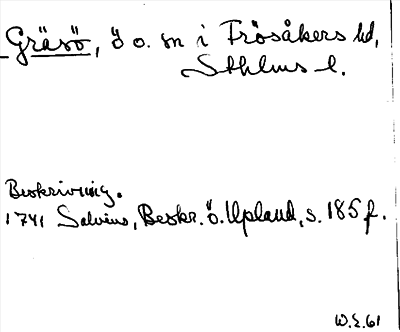 Gräsö, ö o. sn i Frösåkers hd,
Sthlms l.
Beskrivning.
1741 Salvius, Beskr. ö. Upland, s. 185 f.
W.E. 61